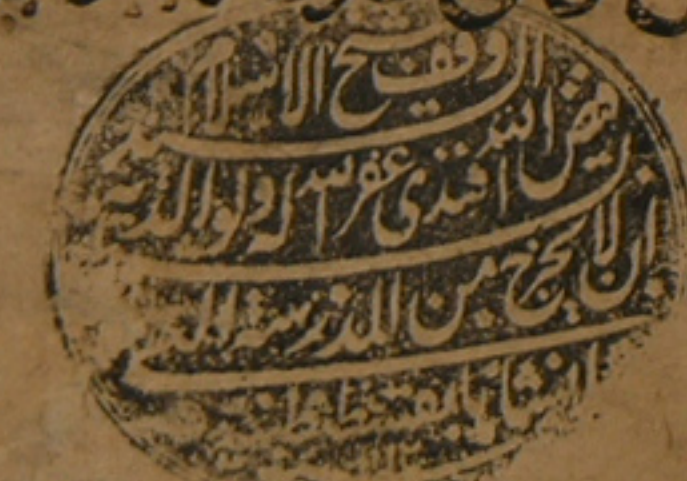 وقف شيخ الاسلام السيد
فيض الله افندى غفر الله له ولوالديه
ان لا يخرج من المدرسة التى
انشأها بقسطنطينية